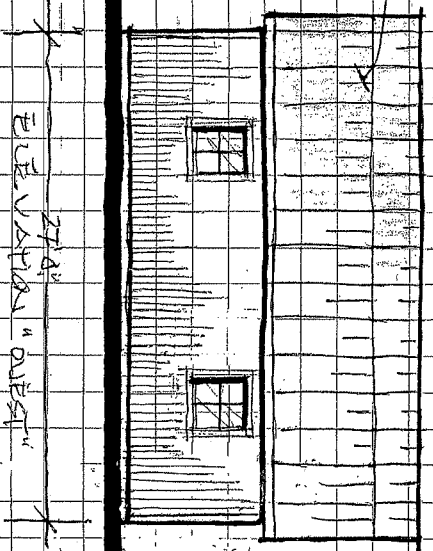 27'0"
ELEVATION "OUEST"